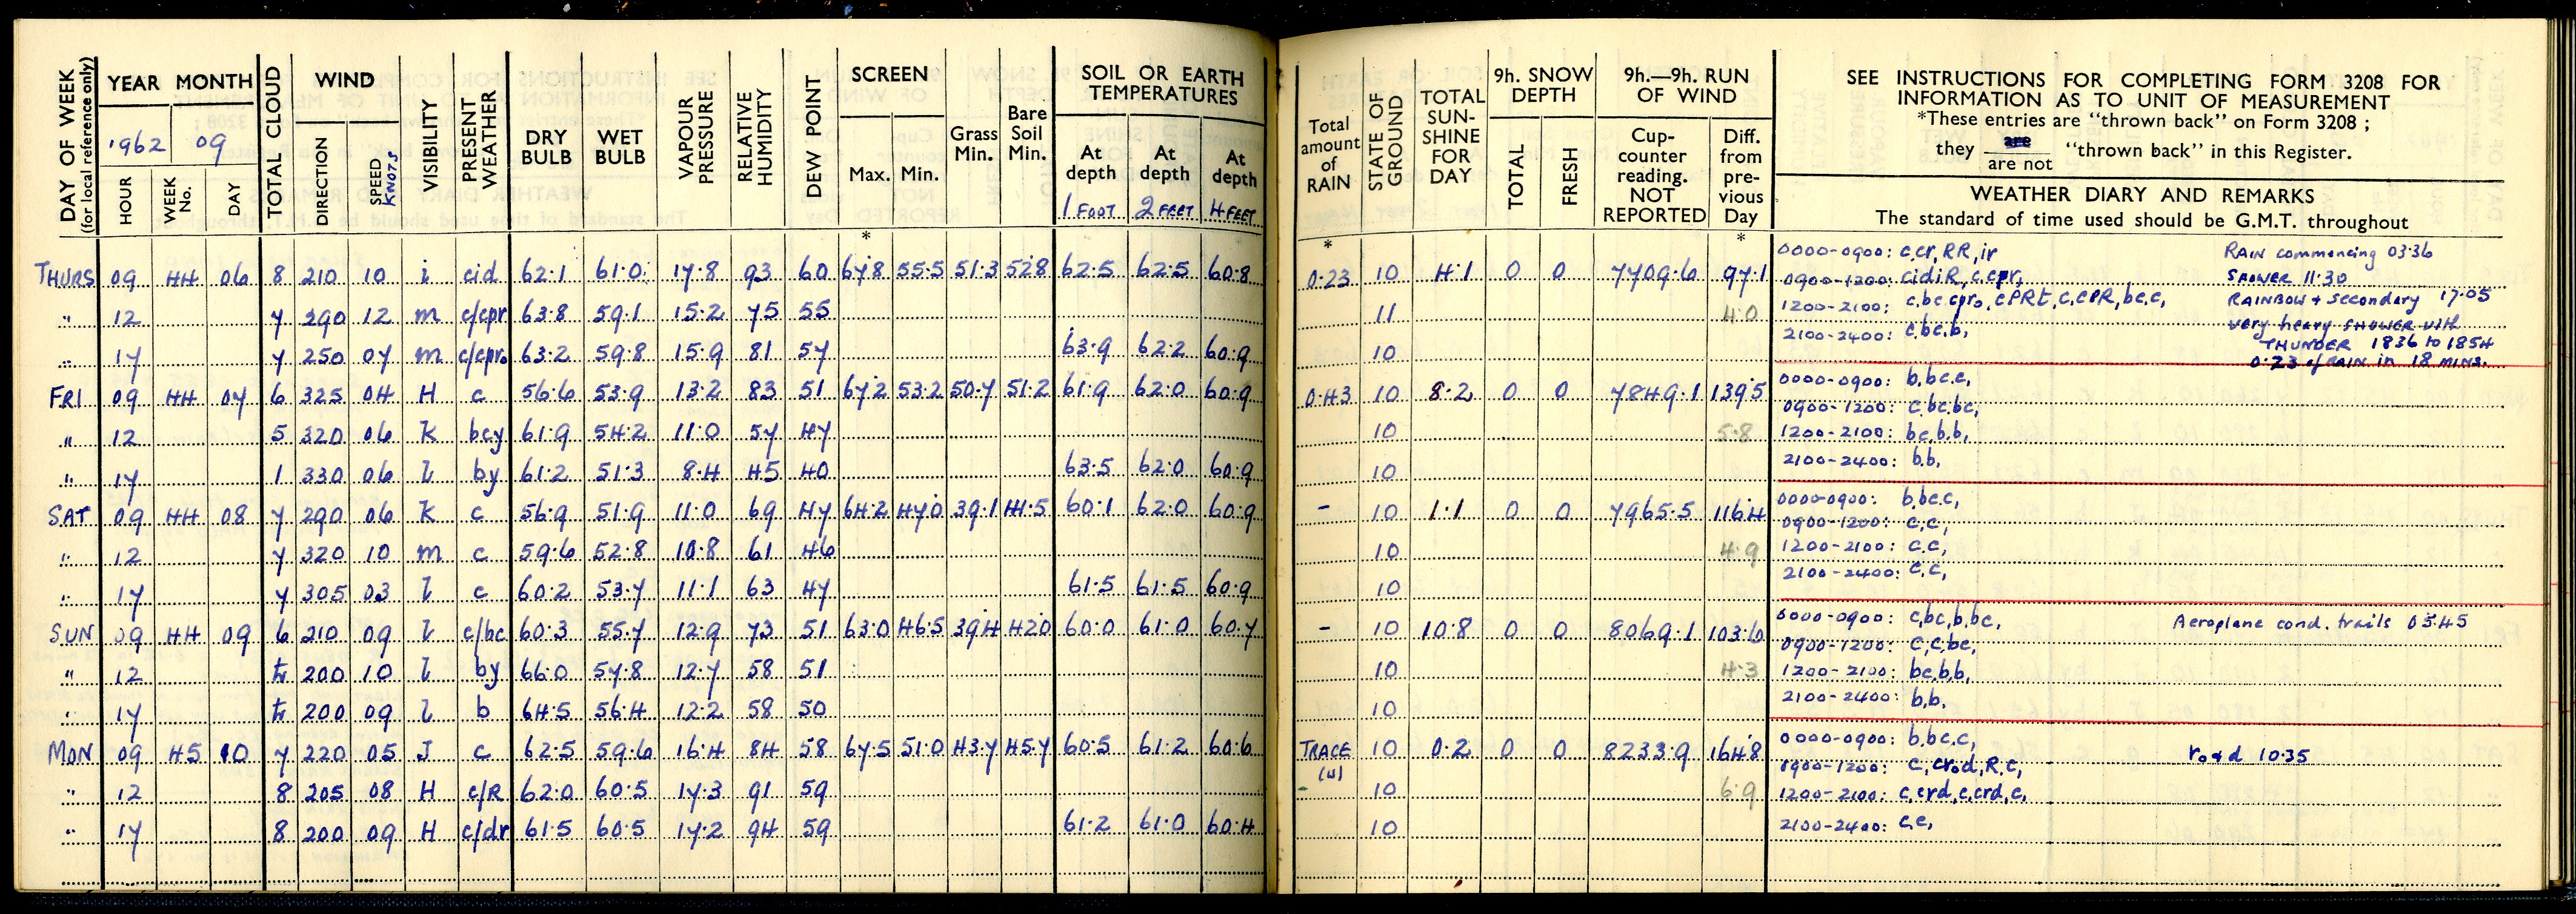 DAY OF WEEK (for local reference only)
YEAR MONTH
1962 09
HOUR WEEK No. DAY
TOTAL CLOUD
WIND
DIRECTION SPEED KNOTS
VISIBILITY
PRESENT WEATHER
DRY BULB
WET BULB
VAPOUR PRESSURE
RELATIVE HUMIDITY
DEW POINT
SCREEN
Max. Min.
*
Grass Min.
Bare Soil Min.
SOIL OR EARTH TEMPERATURES
At depth At depth At depth
1 FOOT 2 FEET 4 FEET
THURS 09 44 06 8 210 10 i cid 62.1 61.0 17.8 93 60 67.8 55.5 51.3 52.8 62.5 62.5 60.8
" 12 7 290 12 m c/cpr 63.8 59.1 15.2 75 55
" 17 7 250 07 m c/cpro 63.2 59.8 15.9 81 57 63.9 62.2 60.9
FRI 09 44 07 6 325 04 H c 56.6 53.9 13.2 83 51 67.2 53.2 50.7 51.2 61.9 62.0 60.9
" 12 5 320 06 k bcy 61.9 54.2 11.0 57 47
" 17 1 330 06 l by 61.2 51.3 8.4 45 40 63.5 62.0 60.9
SAT 09 44 08 7 290 06 k c 56.9 51.9 11.0 69 47 64.2 47.0 39.1 41.5 60.1 62.0 60.9
" 12 7 320 10 m c 59.6 52.8 10.8 61 46
" 17 7 305 03 l c 60.2 53.7 11.1 63 47 61.5 61.5 60.9
SUN 09 44 09 6 210 09 l c/bc 60.3 55.7 12.9 73 51 63.0 46.5 39.4 42.0 60.0 61.0 60.7
" 12 200 10 l by 66.0 57.8 12.7 58 51
" 17 200 09 l b 64.5 56.4 12.2 58 50
MON 09 45 10 7 220 05 J c 62.5 59.6 16.4 84 58 67.5 51.0 43.7 45.7 60.5 61.2 60.6
" 12 8 205 08 H c/R 62.0 60.5 17.3 91 59
" 17 8 200 09 H c/dr 61.5 60.5 17.2 94 59 61.2 61.0 60.4
Total amount of RAIN
*
STATE OF GROUND
TOTAL SUN-SHINE FOR DAY
9h. SNOW DEPTH
TOTAL FRESH
9h.—9h. RUN OF WIND
Cup-counter reading. NOT REPORTED
Diff. from pre-vious Day
*
SEE INSTRUCTIONS FOR COMPLETING FORM 3208 FOR
INFORMATION AS TO UNIT OF MEASUREMENT
*These entries are "thrown back" on Form 3208 ;
they are / are not "thrown back" in this Register.
WEATHER DIARY AND REMARKS
The standard of time used should be G.M.T. throughout
0.23 10 4.1 0 0 7709.6 97.1
11 4.0
10
0000-0900: c,cr,RR,ir RAIN commencing 03.36
0900-1200: cidiR,c,cpr, SHOWER 11.30
1200-2100: c,bc,cpro,cPRt,c,cPR,bc,c, RAINBOW + secondary 17.05
2100-2400: c,bc,b, very heavy SHOWER with
THUNDER 1836 to 1854
0.23 of RAIN in 18 MINS.
0.43 10 8.2 0 0 7849.1 139.5
10 5.8
10
0000-0900: b,bc,c,
0900-1200: c,bc,bc,
1200-2100: bc,b,b,
2100-2400: b,b,
- 10 1.1 0 0 7965.5 116.4
10 4.9
10
0000-0900: b,bc,c,
0900-1200: c,c,
1200-2100: c,c,
2100-2400: c,c,
- 10 10.8 0 0 8069.1 103.6
10 4.3
10
0000-0900: c,bc,b,bc, Aeroplane cond. trails 0545
0900-1200: c,c,bc,
1200-2100: bc,b,b,
2100-2400: b,b,
TRACE 10 0.2 0 0 8233.9 164.8
10 6.9
10
0000-0900: b,bc,c,
0900-1200: c,crod,R,c, ro+d 10.35
1200-2100: c,crd,c,crd,c,
2100-2400: c,c,